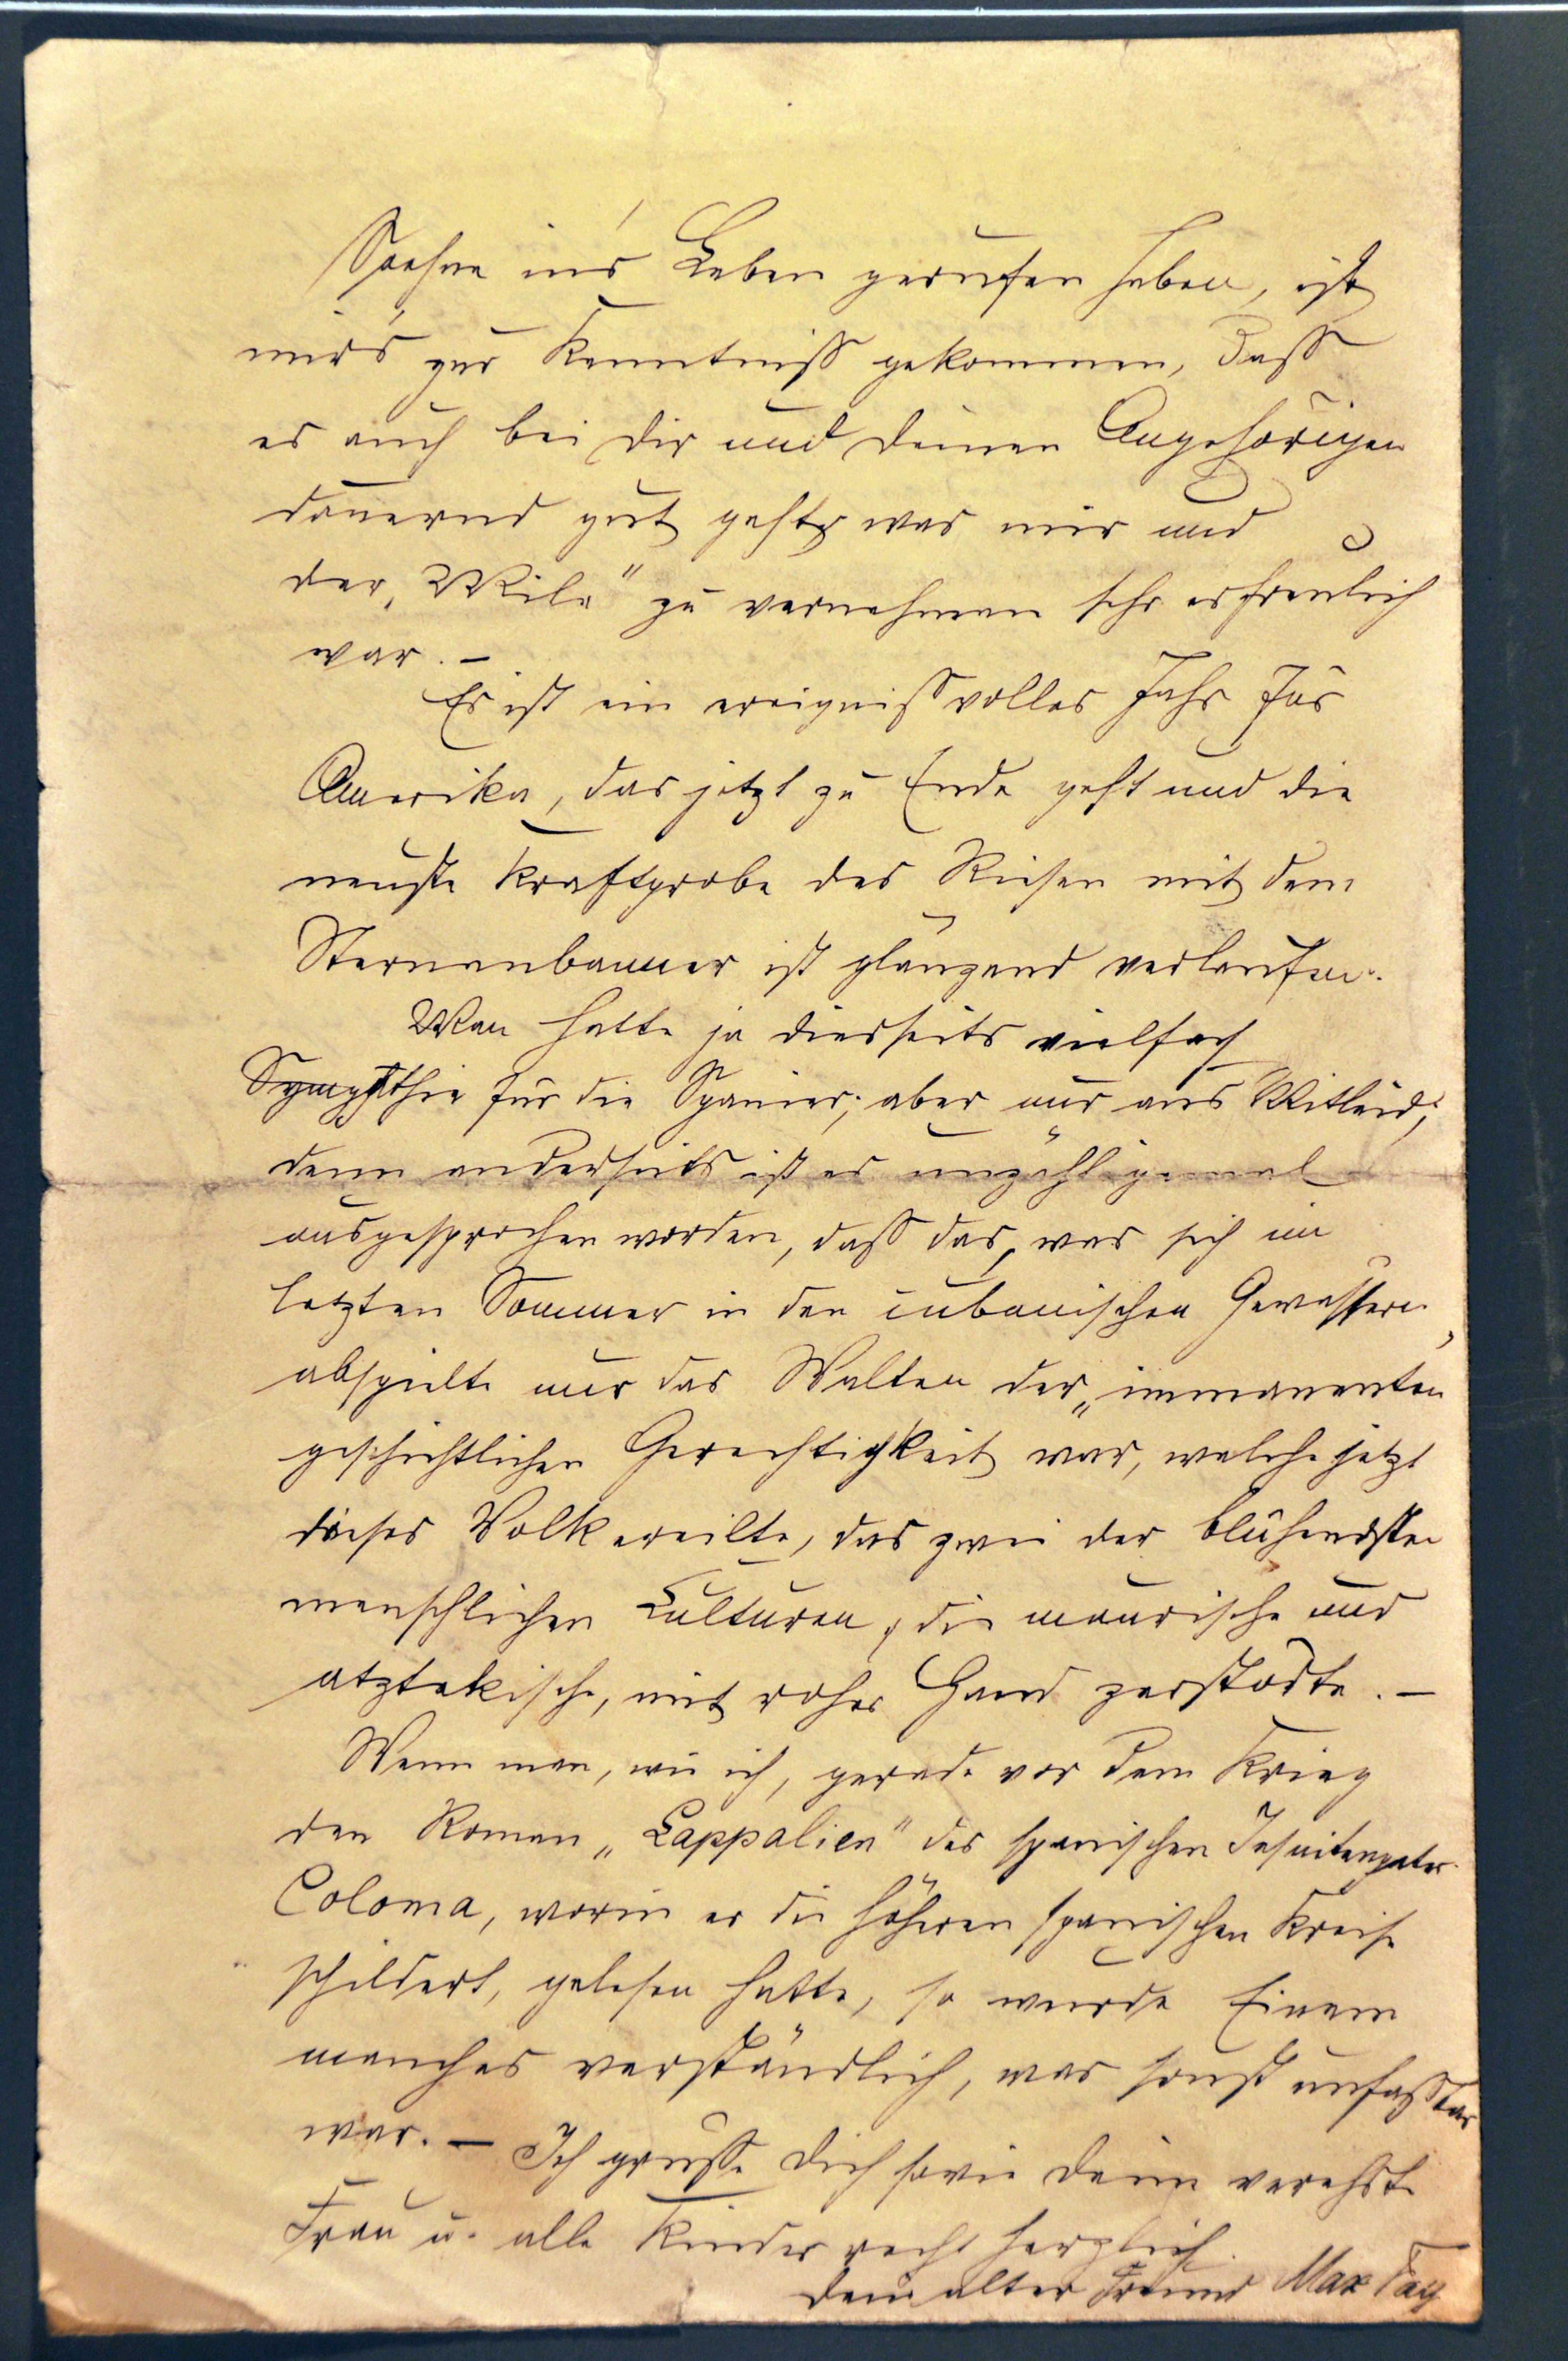 Söhne in's Leben gerufen haben, ist
mir's zur Kenntniss gekommen, dass
es auch bei Dir und Deinen Angehörigen
dauernd gut geht, was mir und
der zu vernehmen sehr erfreulich
war. –
Es ist ein ereignissvolles Jahr für
Amerika, das jetzt zu Ende geht und die
neuste Kraftprobe des Riesen mit dem
Sternenbanner ist glänzend verlaufen.
Man hatte ja diesseits vielfach
Sympathie für die Spanier; aber nur aus Mitleid;
denn anderseits ist es unzähligemal
ausgesprochen worden, dass das, was sich im
letzten Sommer in den cubanischen Gewässern
abspielte nur das Walten der „immanenten
geschichtlichen Gerechtigkeit war, welche jetzt
dieses Volk ereilte, das zwei der blühendsten
menschlichen Culturen, die maurische und
atztekische, mit roher Hand zerstörte. –
Wenn man, wie ich, gerade vor dem Krieg
den Roman „Lappalien" des spanischen Jesuitenpater
Coloma, worin er die höheren spanischen Kreise
schildert, gelesen hatte, so wurde Einem
manches verständlich, was sonst unfassbar
war. – Ich grüsse Dich sowie Deine verehrte
Frau u. alle Kinder recht herzlich.
Dein alter Freund Max Fay